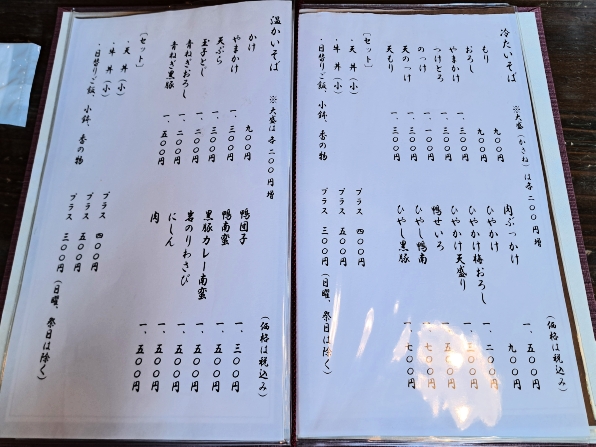 冷たいそば ※大盛(かさね)は各二〇〇円増
もり 九〇〇円
おろし 九〇〇円
やまかけ 一、三〇〇円
つけとろ 一、三〇〇円
のっけ 一、一〇〇円
天のっけ 一、三〇〇円
天もり 一、三〇〇円
肉ぶっかけ 一、五〇〇円
ひやかけ 九〇〇円
ひやかけ梅おろし 一、二〇〇円
ひやかけ天盛り 一、三〇〇円
鴨せいろ 一、五〇〇円
ひやし鴨南 一、七〇〇円
ひやし黒豚 一、七〇〇円
(価格は税込み)
〔セット〕
・天丼(小) プラス 四〇〇円
・牛丼(小) プラス 五〇〇円
・日替りご飯、小鉢、香の物 プラス 三〇〇円(日曜、祭日は除く)
温かいそば ※大盛は各二〇〇円増
かけ 九〇〇円
やまかけ 一、三〇〇円
天ぷら 一、三〇〇円
玉子とじ 一、二〇〇円
青ねぎおろし 一、二〇〇円
青ねぎ黒豚 一、五〇〇円
鴨団子 一、三〇〇円
鴨南蛮 一、五〇〇円
黒豚カレー南蛮 一、五〇〇円
岩のりわさび 一、五〇〇円
にしん 一、五〇〇円
肉 一、五〇〇円
(価格は税込み)
〔セット〕
・天丼(小) プラス 四〇〇円
・牛丼(小) プラス 五〇〇円
・日替りご飯、小鉢、香の物 プラス 三〇〇円(日曜、祭日は除く)